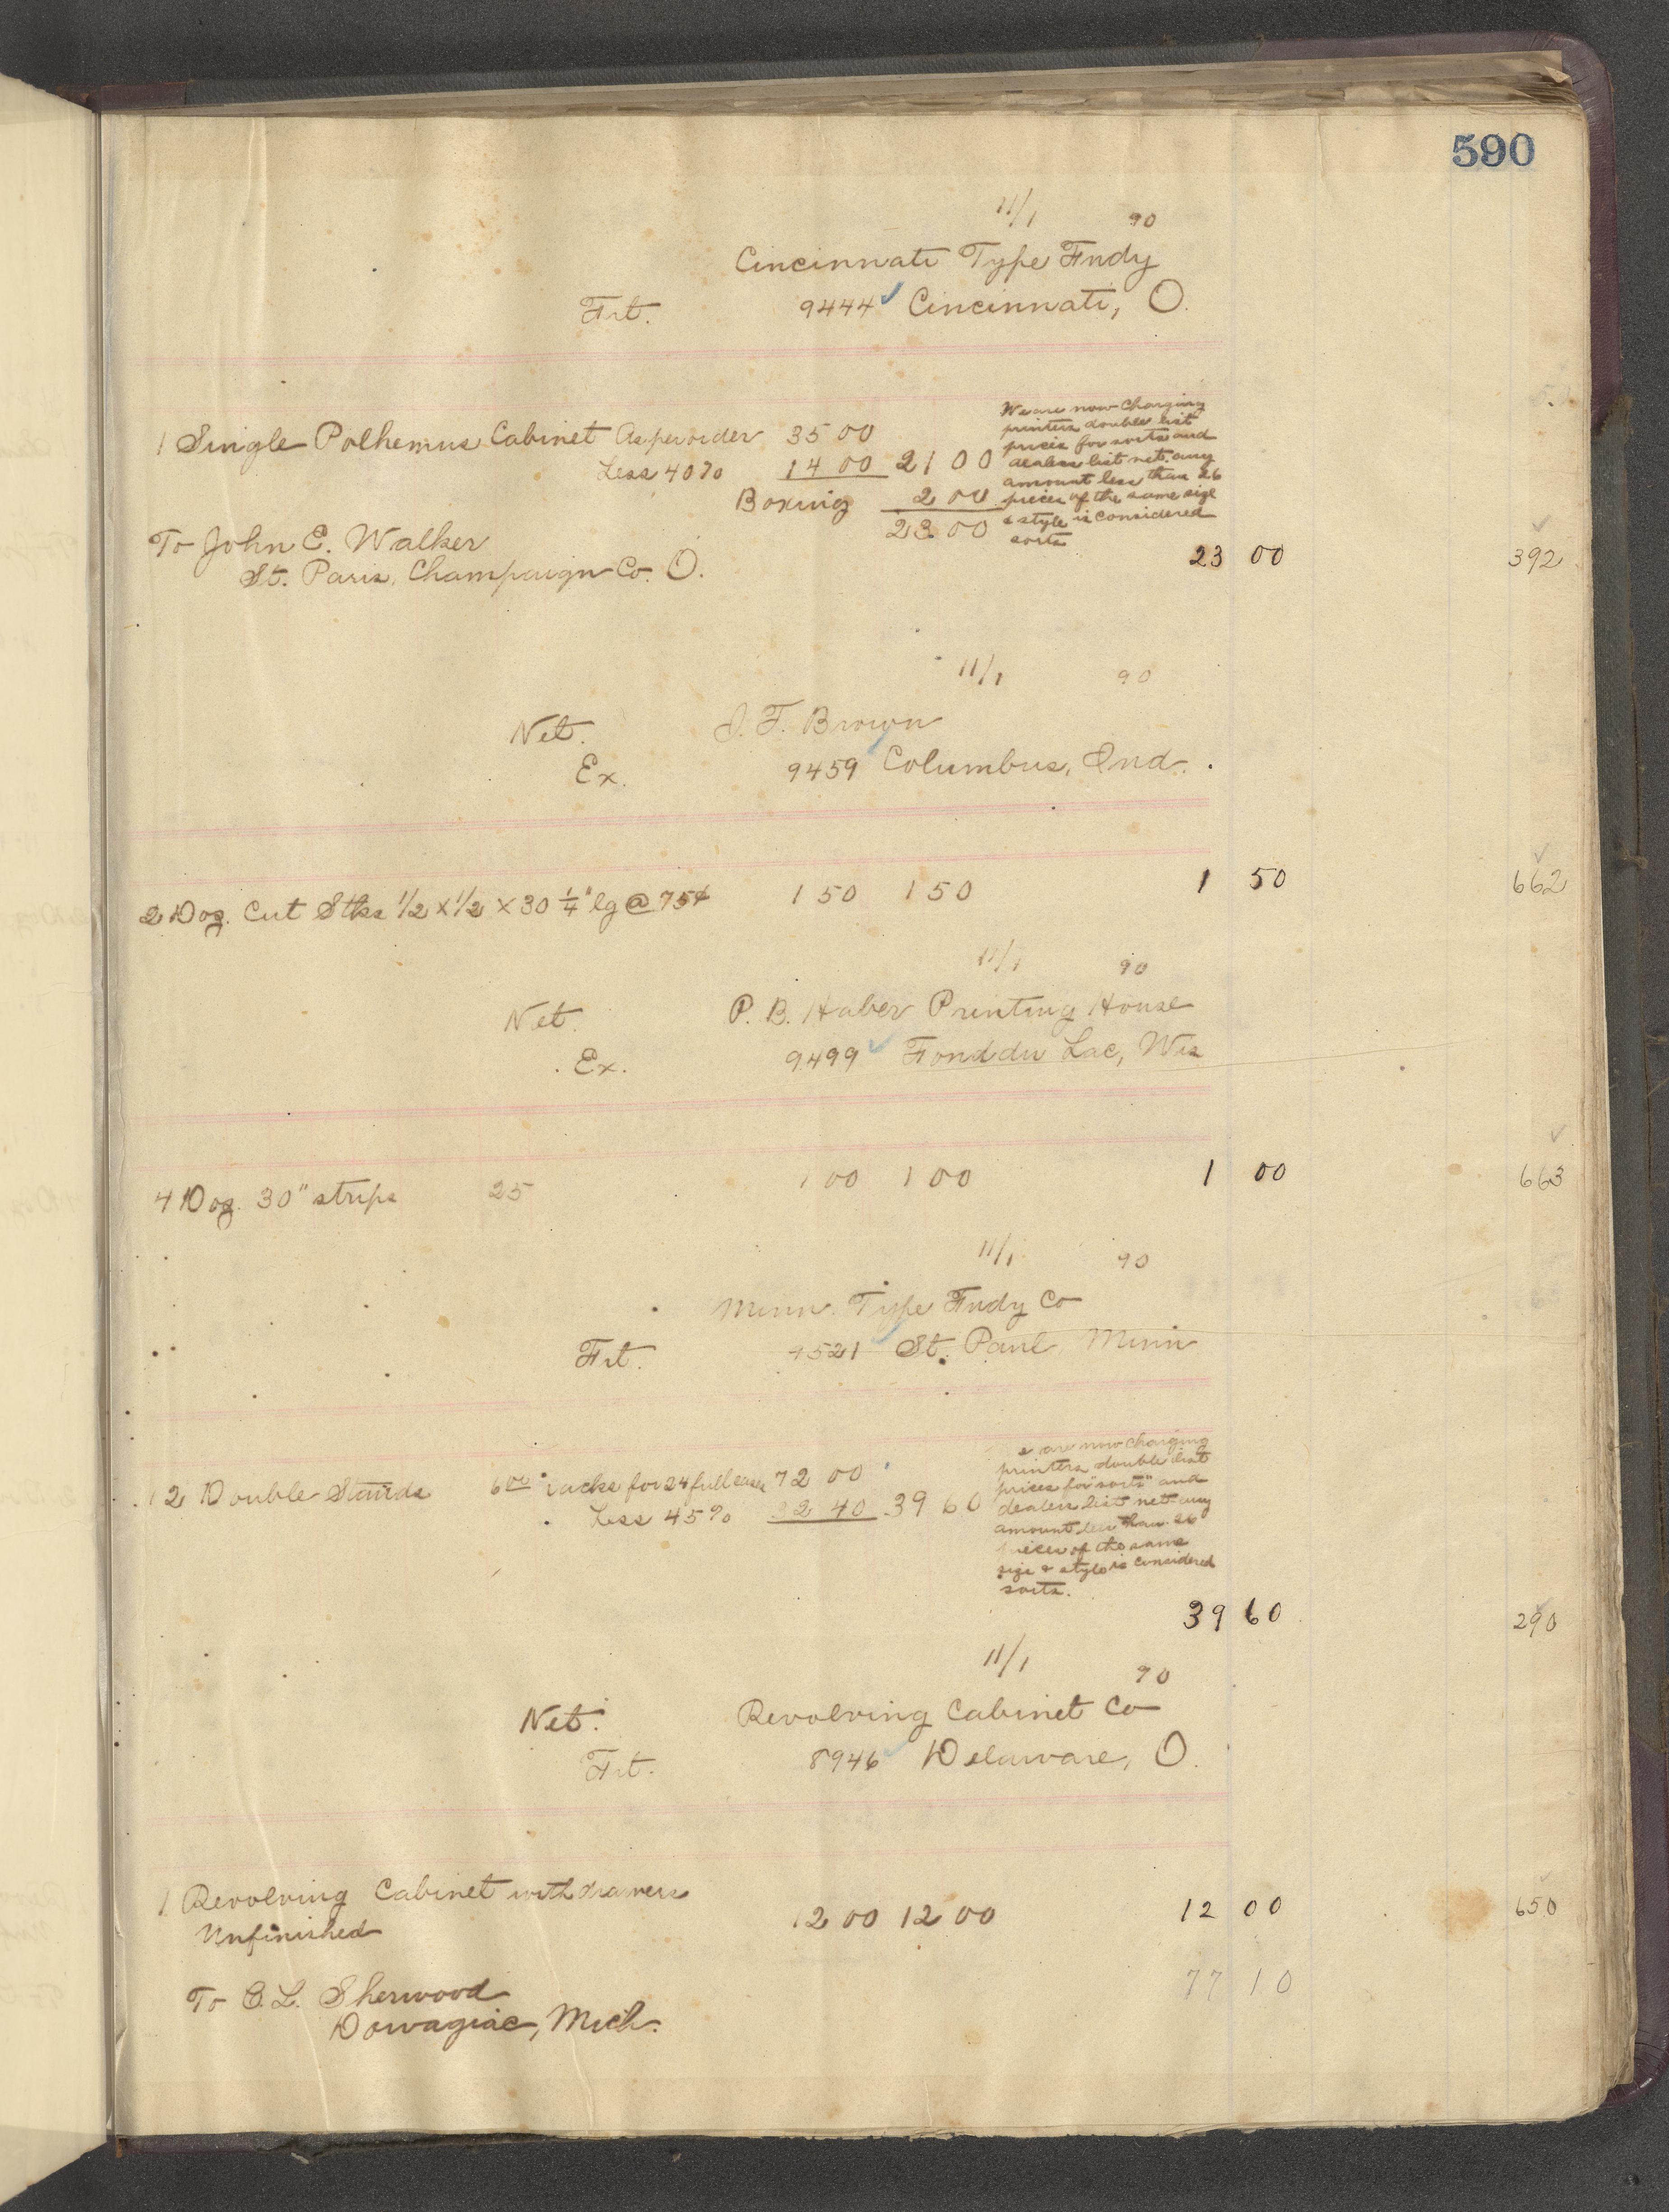 590
11/1 90
Cincinnati Type Fndy
Frt. 9444 Cincinnati, O.
1 Single Polhemus Cabinet As per order 35 00
Less 40% 14 00 21 00
Boxing 2 00
23 00
We are now charging
printers double list
prices for sorts and
dealers list net. any
amount less than 26
pieces of the same size
& style is considered
sorts
To John E. Walker
St. Paris, Champaign Co. O.
23 00 392
11/1 90
Net. J. F. Brown
Ex. 9459 Columbus, Ind.
2 Doz. Cut Stks 1/2 x 1/2 x 30 1/4" lg @ 75¢ 1 50 1 50 1 50 662
11/1 90
Net. P. B. Haber Printing House
Ex. 9499 Fond du Lac, Wis
4 Doz. 30" strips 25 1 00 1 00 1 00 663
11/1 90
Minn. Type Fndy Co
Frt. 9521 St. Paul Minn
12 Double Stands 6 00 racks for 24 full cases 72 00
Less 45% 32 40 39 60
are now charging
printers double list
prices for "sorts" and
dealers list net any
amount less than 26
pieces of the same
size & style is considered
sorts.
39 60 290
11/1 90
Net. Revolving Cabinet Co
Frt. 8946 Delaware, O.
1 Revolving Cabinet with drawers
Unfinished 12 00 12 00 12 00 650
To E. L. Sherwood
Dowagiac, Mich.
77 10